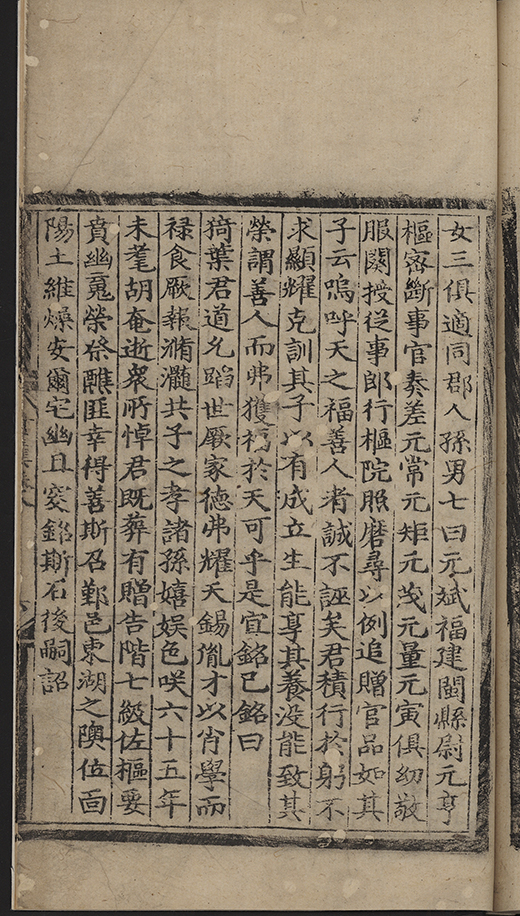 女三俱適同郡人孫男七曰元斌福建閩縣尉元亨
樞密斷事官奏差元常元矩元茂元量元寅俱幼敬
服闋授從事郎行樞院照磨尋以例追贈官品如其
子云嗚呼天之福善人者誠不誣矣君積行於躬不
求顯耀克訓其子以有成立生能享其養没能致其
榮謂善人而弗獲福於天可乎是宜銘已銘曰
猗葉君道允蹈世厥家德弗耀天錫胤才以肖學而
禄食厥報滫瀡共子之孝諸孫嬉娱色咲六十五年
未耄胡奄逝衆所悼君既葬有贈告階七級佐樞要
賁幽冤榮
匪幸得善斯召鄞邑東湖之隩位面
陽土維燥安爾宅幽且窔銘斯石後嗣詔